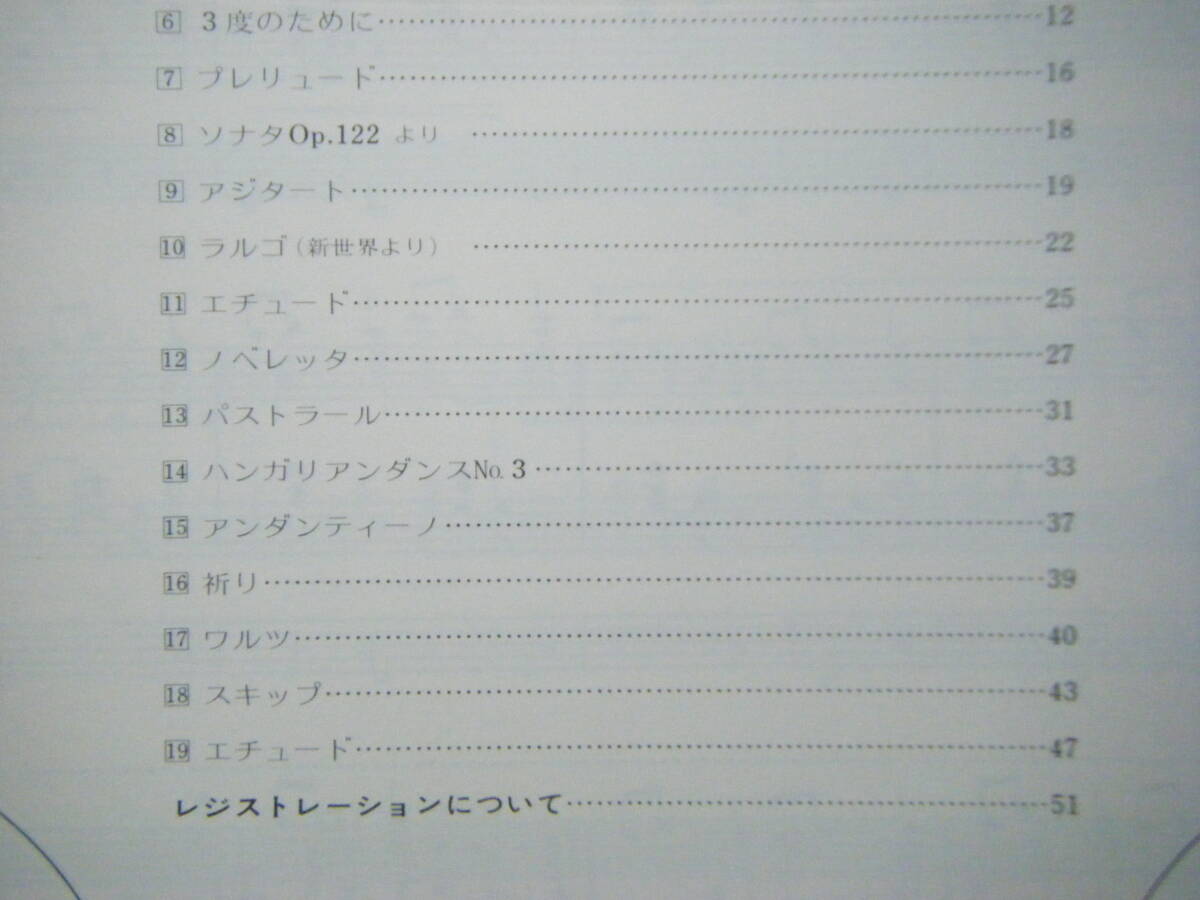 6 3度のために……………………12
7 プレリュード……………………16
8 ソナタOp.122 より ……………………18
9 アジタート……………………19
10 ラルゴ(新世界より) ……………………22
11 エチュード……………………25
12 ノベレッタ……………………27
13 パストラール……………………31
14 ハンガリアンダンスNo.3……………………33
15 アンダンティーノ……………………37
16 祈り……………………39
17 ワルツ……………………40
18 スキップ……………………43
19 エチュード……………………47
レジストレーションについて……………………51